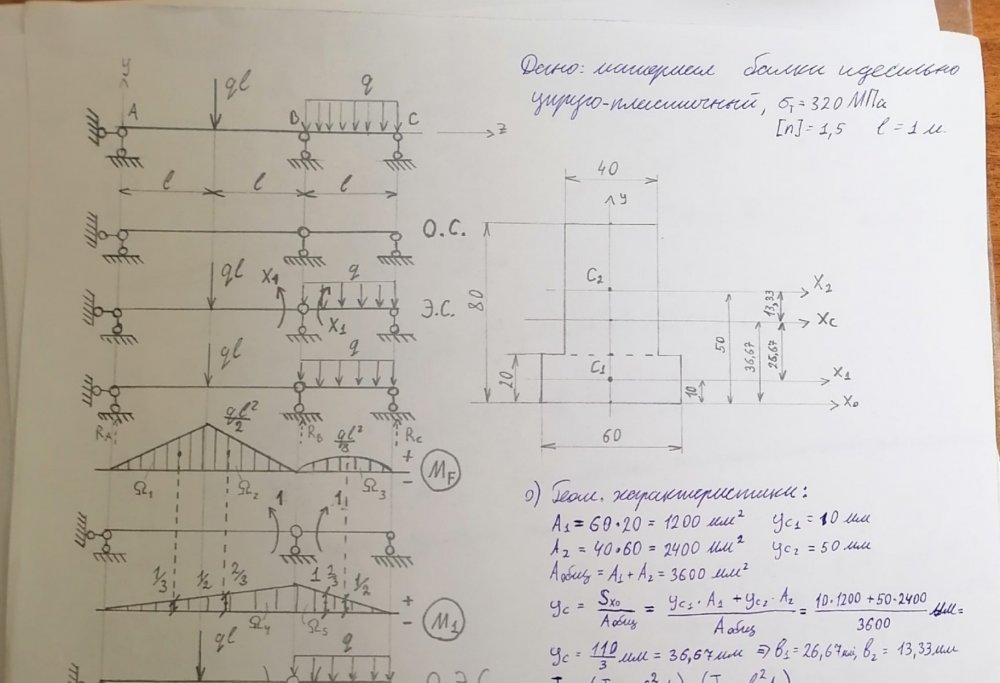 Дано: материал балки идеально
упруго-пластичный, σт = 320 МПа
[n] = 1,5 l = 1 м.
y
A
ql
B
q
C
z
l
l
l
О.С.
ql
X1
X1
q
Э.С.
ql
q
RA
RB
RC
ql²/2
ql²/8
+
-
MF
Ω1
Ω2
Ω3
1
1
1/3
1/2
2/3
1
2/3
1/2
Ω4
Ω5
+
-
M1
ql
q
40
y
C2
X2
13,33
Xc
80
50
36,67
26,67
20
C1
10
X1
X0
60
0) Геом. характеристики:
A1 = 60·20 = 1200 мм² yc1 = 10 мм
A2 = 40·60 = 2400 мм² yc2 = 50 мм
Aобщ = A1 + A2 = 3600 мм²
yc = Sx0/Aобщ = (yc1·A1 + yc2·A2)/Aобщ = (10·1200 + 50·2400)/3600 мм =
yc = 110/3 мм = 36,67 мм ⇒ b1 = 26,67 мм, b2 = 13,33 мм